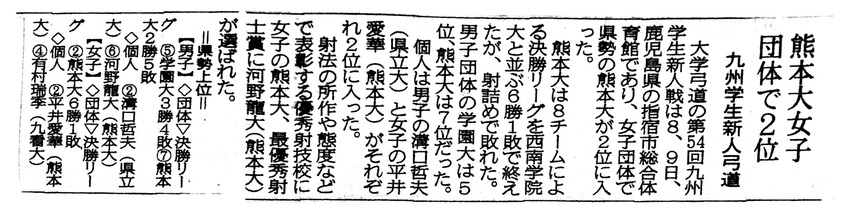 熊本大女子
団体で2位
九州学生新人弓道
大学弓道の第54回九州
学生新人戦は8、9日、
鹿児島県の指宿市総合体
育館であり、女子団体で
県勢の熊本大が2位に入
った。
熊本大は8チームによ
る決勝リーグを西南学院
大と並ぶ6勝1敗で終え
たが、射詰めで敗れた。
男子団体の学園大は5
位、熊本大は7位だった。
個人は男子の溝口哲夫
(県立大)と女子の平井
愛華(熊本大)がそれぞ
れ2位に入った。
射法の所作や態度など
で表彰する優秀射技校に
女子の熊本大、最優秀射
士賞に河野龍大(熊本大)
が選ばれた。
=県勢上位=
【男子】◇団体▽決勝リー
グ ⑤学園大3勝4敗⑦熊本
大2勝5敗
◇個人 ②溝口哲夫(県立
大)⑥河野龍大(熊本大)
【女子】◇団体▽決勝リー
グ ②熊本大6勝1敗
◇個人 ②平井愛華(熊本
大)④有村瑞季(九看大)